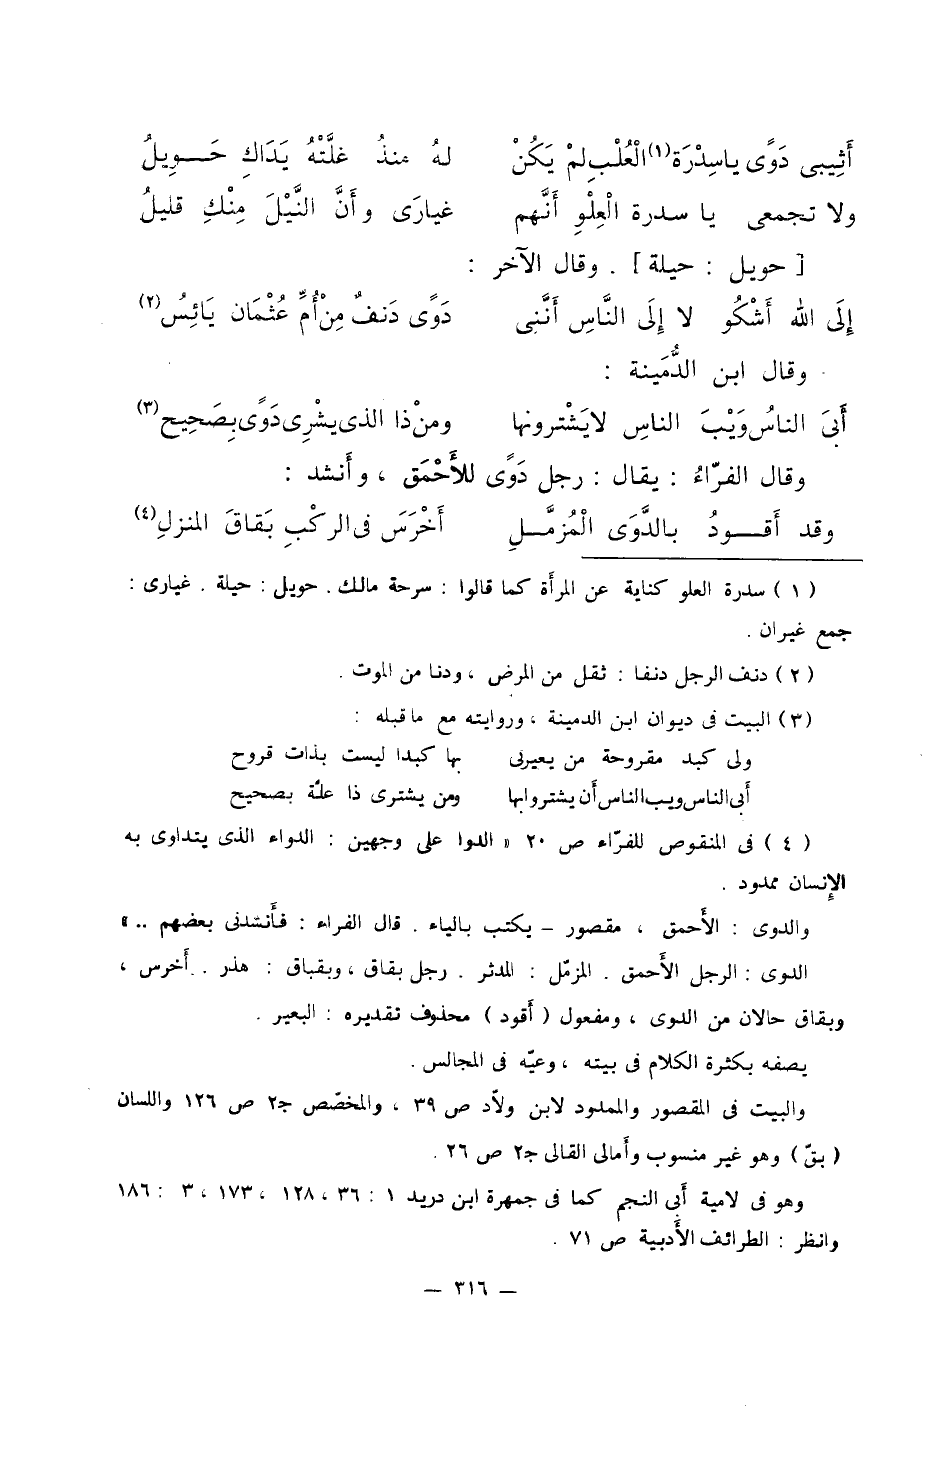 أَثِيبى دَوًى ياسِدْرَة(١)الْعُلْبِ لمْ يَكُنْ لهُ منذُ علَّتْهُ يَدَاكِ حَـــوِيلُ
ولا تجمعى يا سدرة الْعِلْوِ أَنَّهم غيارَى وأنَّ النَّيْلَ مِنْكِ قليلُ
[ حويل : حيلة ] . وقال الآخر :
إلَى اللهِ أَشْكُو لا إلَى النَّاسِ أنَّنى دَوًى دَنفٌ مِنْ أُمِّ عُثْمَان يَائِسُ(٢)
وقال ابن الدُّمَينة :
أبَى الناسُ وَيْبَ الناسِ لايَشْترونها ومنْ ذا الذى يشْرِى دَوًى بِصَحِيحِ(٣)
وقال الفرّاءُ : يقال : رجل دَوًى للأَحْمَق ، وأنشد :
وقد أقــودُ بالدَّوَى الْمُزمَّــلِ أخْرَسَ فى الركْبِ بَقاقَ المنزلِ(٤)
(١) سدرة العلو كناية عن المرأة كما قالوا : سرحة مالك . حويل : حيلة . غيارى :
جمع غيران .
(٢) دنف الرجل دنفا : ثقل من المرض ، ودنا من الموت .
(٣) البيت فى ديوان ابن الدمينة ، وروايته مع ما قبله :
ولى كبد مقروحة من يعيرنى بها كبدا ليست بذات قروح
أبى الناس ويب الناس أن يشتروا بها ومن يشترى ذا علّة بصحيح
(٤) فى المنقوص للفرّاء ص ٢٠ « الدوا على وجهين : الدواء الذى يتداوى به
الإنسان ممدود .
والدوى : الأحمق ، مقصور – يكتب بالياء . قال الفراء : فأنشدنى بعضهم .. »
الدوى : الرجل الأحمق . المزمّل : المدثر . رجل بقاق ، وبقباق : هذر . أخرس ،
وبقاق حالان من الدوى ، ومفعول ( أقود ) محذوف تقديره : البعير .
يصفه بكثرة الكلام فى بيته ، وعيّه فى المجالس .
والبيت فى المقصور والممدود لابن ولاّد ص ٣٩ ، والمخصّص ج٢ ص ١٢٦ واللسان
( بقّ ) وهو غير منسوب وأمالى القالى ج٢ ص ٢٦ .
وهو فى لامية أبى النجم كما فى جمهرة ابن دريد ١ : ٣٦ ، ١٢٨ ، ١٧٣ ، ٣ : ١٨٦
وانظر : الطرائف الأدبية ص ٧١ .
– ٣١٦ –